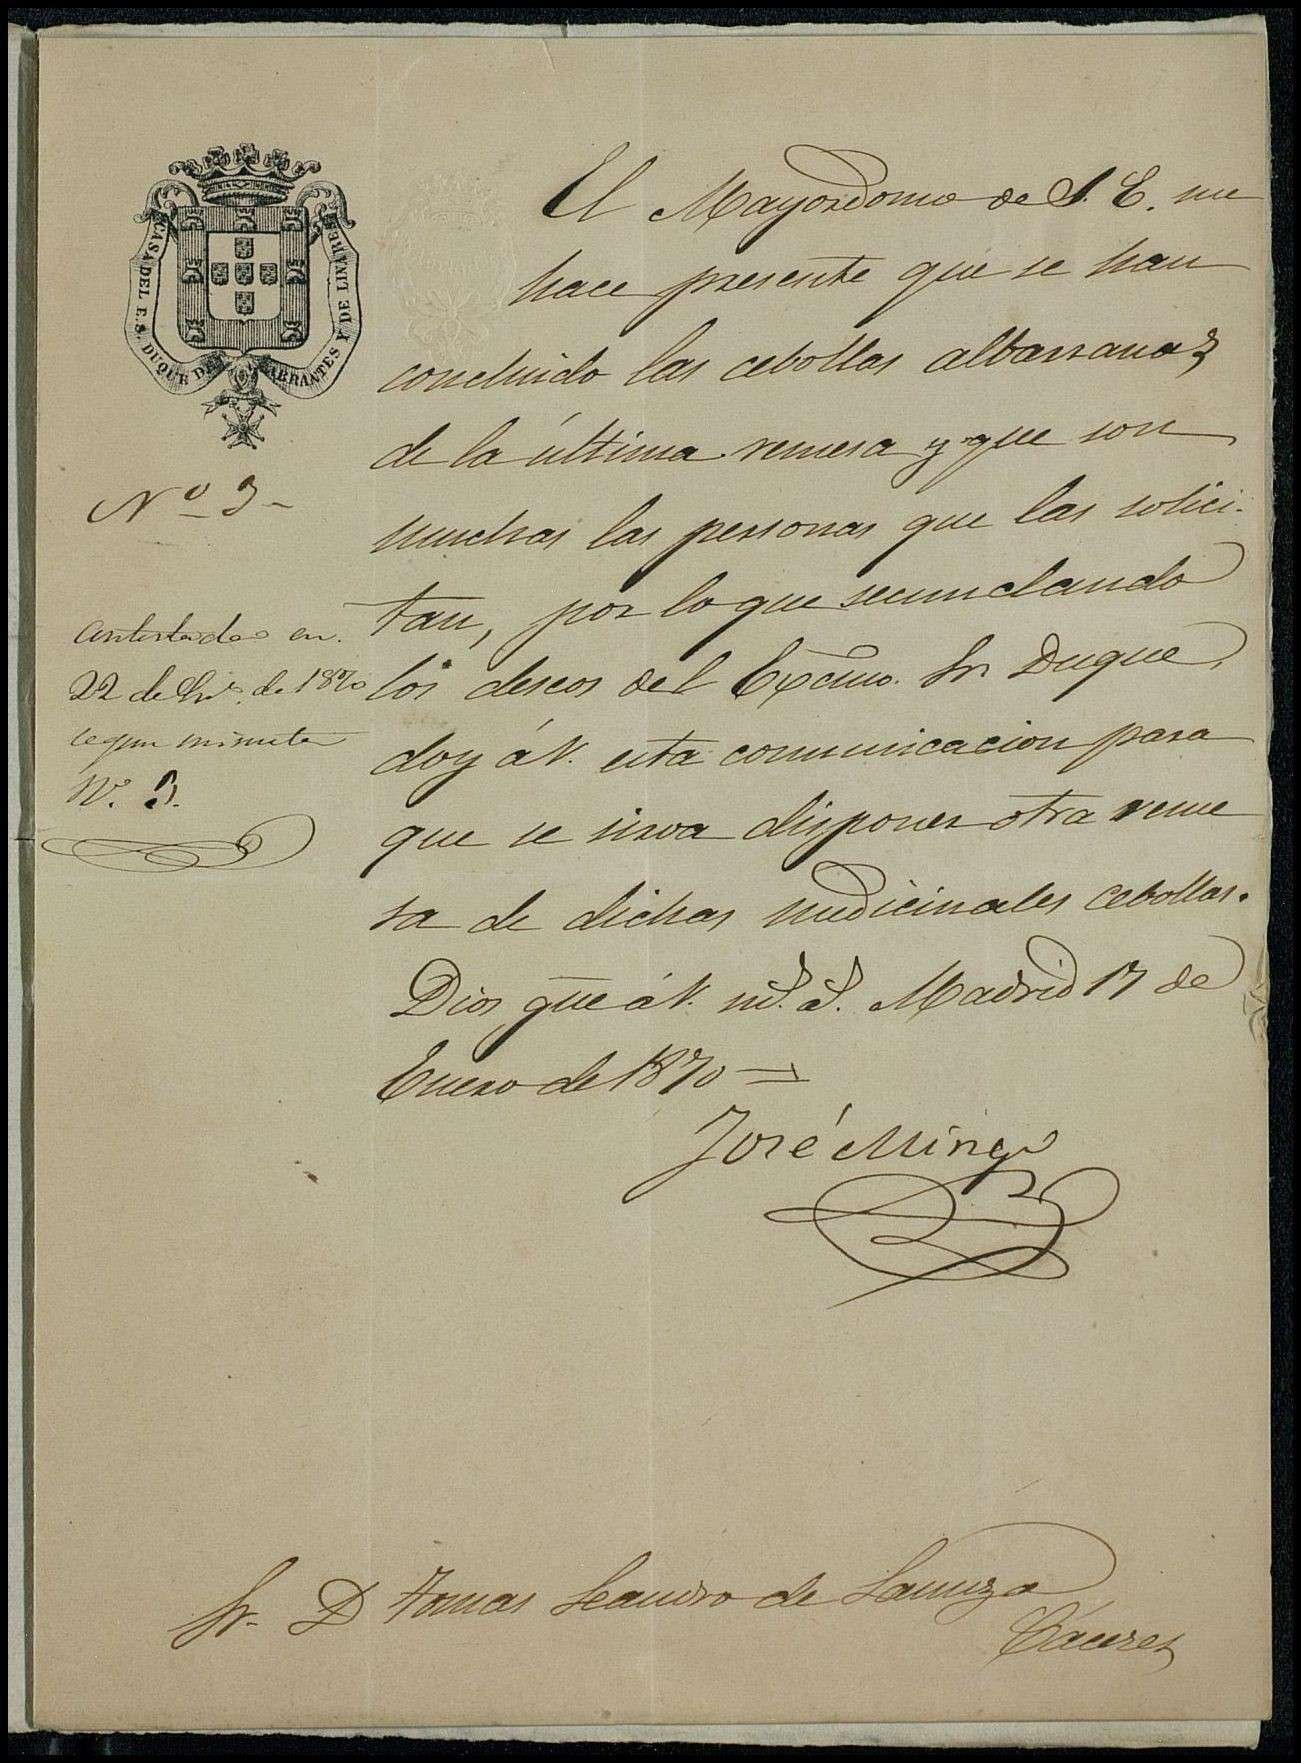 CASA DEL E. S. DUQUE DE ABRANTES Y DE LINARES
Nº 3-
Contestado en
22 de de 1870
segun minuta
Nº. 3.
El Mayordomo de S. E. me
hace presente que se han
concluido las cebollas albarranas
de la última remesa y que son
muchas las personas que las solici-
tan, por lo que secundando
los deseos del Excmo. Sr. Duque,
doy á V. esta comunicacion para
que se sirva disponer otra reme
sa de dichas medicinales cebollas.
Dios gue á V. ms. as. Madrid 17 de
Enero de 1870 =
José Mingo
Sr. D Tomas Leandro de Lamuza
Cáceres